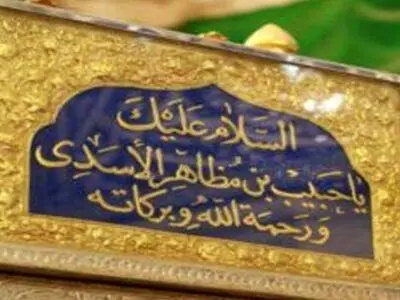 السَّلَامُ عَلَيْكَ
يَا حَبِيْبَ بْنَ مُظَاهِرِ الأَسَدِي
وَرَحْمَةُ اللهِ وَبَرَكَاتُه